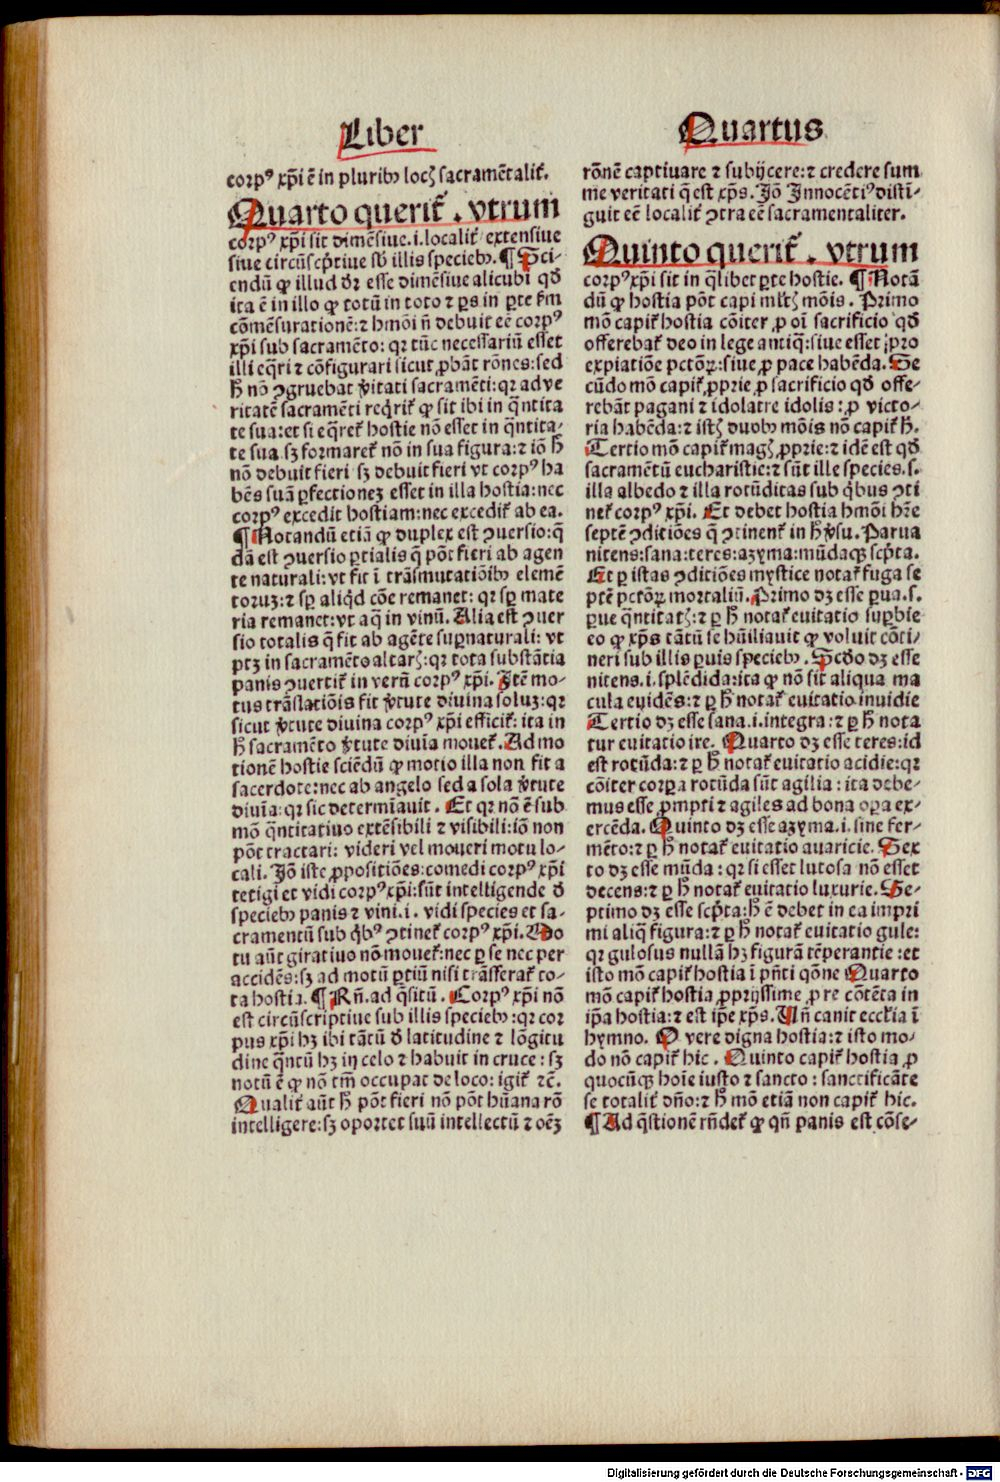 Liber
Quartus
corpꝰ xp̄i ē in pluribꝫ locꝭ sacramētalit᷑.
Quarto querit᷑. vtrum
corpꝰ xp̄i sit dimēsiue.i.localit᷑ extensiue
siue circūscp̄tiue sb̄ illis speciebꝫ. ¶ Sci-
endū ꝙ illud dr̄ esse dimēsiue alicubi qd̄
ita ē in illo ꝙ totū in toto ⁊ ꝑs in ꝑte fm̄
cōmēsurationē:⁊ hmōi n̄ debuit eē corpꝰ
xp̄i sub sacramēto: qꝛ tūc necessariū esset
illi eq̄ri ⁊ cōfigurari sicut ꝓbāt rōnes: sed
h̄ nō ꝯgruebat v̄itati sacramēti: qꝛ ad ve
ritatē sacramēti req̄rit᷑ ꝙ sit ibi in q̄ntita
te sua: et si eq̄ret᷑ hostie nō esset in q̄ntita-
te sua sꝫ formaret᷑ nō in sua figura: ⁊ iō h̄
nō debuit fieri sꝫ debuit fieri vt corpꝰ ha
bēs suā ꝑfectionez esset in illa hostia: nec
corpꝰ excedit hostiam: nec excedit᷑ ab ea.
¶ Notandū etiā ꝙ duplex est ꝯuersio: q̄
dā est ꝯuersio ꝑtialis q̄ pōt fieri ab agen
te naturali: vt fit ī trāsmutatiōibꝫ elemē
toruꝫ: ⁊ sꝑ aliqd̄ cōe remanet: qꝛ sꝑ mate
ria remanet: vt aq̄ in vinū. Alia est ꝯuer
sio totalis q̄ fit ab agēte suꝑnaturali: vt
ptꝫ in sacramēto altarꝭ: qꝛ tota substātia
panis ꝯuertit᷑ in verū corpꝰ xp̄i. Itē mo-
tus trāslatiōis fit v̄tute diuina soluꝫ: qꝛ
sicut v̄tute diuina corpꝰ xp̄i efficit᷑: ita in
h̄ sacramēto v̄tute diuīa mouet᷑. Ad mo
tionē hostie sciēdū ꝙ motio illa non fit a
sacerdote: nec ab angelo sed a sola v̄tute
diuīa: qꝛ sic determīauit. Et qꝛ nō ē sub
mō q̄ntitatiuo extēsibili ⁊ visibili: iō non
pōt tractari: videri vel moueri motu lo-
cali. Iō iste ꝓpositiōes: comedi corpꝰ xp̄i
tetigi et vidi corpꝰ xp̄i: sūt intelligende d̄
speciebꝫ panis ⁊ vini.i. vidi species et sa-
cramentū sub qb̄ꝰ ꝯtinet᷑ corpꝰ xp̄i. Mo
tu aūt giratiuo nō mouet᷑: nec ꝑ se nec per
accidēs: sꝫ ad motū ꝑtiū nisi trāsferat᷑ to-
ta hostia. ¶ Rn̄. ad q̄sitū. Corpꝰ xp̄i nō
est circūscriptiue sub illis speciebꝫ: qꝛ cor
pus xp̄i hꝫ ibi tātū d̄ latitudine ⁊ lōgitu
dine q̄ntū hꝫ in celo ⁊ habuit in cruce: sꝫ
notū ē ꝙ nō tm̄ occupat de loco: igit᷑ ⁊c̄.
Qualit᷑ aūt h̄ pōt fieri nō pōt hūana rō
intelligere: sꝫ oportet suū intellectū ⁊ oēꝫ
rōnēm captiuare ⁊ subijcere: ⁊ credere sum
me veritati q̄ est xp̄s. Iō Innocētiꝰ disti-
guit eē localit᷑ ꝯtra eē sacramentaliter.
Quinto querit᷑. vtrum
corpꝰ xp̄i sit in q̄libet ꝑte hostie. ¶ Notā
dū ꝙ hostia pōt capi mltꝭ mōis. Primo
mō capit᷑ hostia cōiter ꝓ oī sacrificio qd̄
offerebat᷑ deo in lege antiq̄: siue esset ꝓro
expiatiōe pctōꝝ: siue ꝓ pace habēda. Se
cūdo mō capit᷑ ꝓprie ꝓ sacrificio qd̄ offe-
rebāt pagani ⁊ idolatre idolis: ꝓ victo-
ria habēda: ⁊ istꝭ duobꝫ mōis nō capit᷑ h̄.
Tertio mō capit᷑ magꝭ ꝓprie: ⁊ idē est qd̄
sacramētū eucharistie: ⁊ sūt ille species.s.
illa albedo ⁊ illa rotūditas sub qb̄us ꝯti
net᷑ corpꝰ xp̄i. Et debet hostia hmōi hr̄e
septē ꝯditiōes q̄ ꝯtinent᷑ in h̄ v̄su. Parua
nitens: sana: teres: azyma: mūdaqꝫ scp̄ta.
Et ꝑ istas ꝯditiōes mystice notat᷑ fuga se
ptē pctōꝝ mortaliū. Primo dꝫ esse ꝑua.s.
ꝑue q̄ntitatꝭ: ⁊ ꝑ h̄ notat᷑ euitatio suꝑbie
eo ꝙ xp̄s tātū se hūiliauit ꝙ voluit cōti-
neri sub illis ꝑuis speciebꝫ. Scd̄o dꝫ esse
nitens.i.splēdida: ita ꝙ nō sit aliqua ma
cula euidēs: ⁊ ꝑ h̄ notat᷑ euitatio inuidie
Tertio dꝫ esse sana.i.integra: ⁊ ꝑ h̄ nota
tur euitatio ire. Quarto dꝫ esse teres: id
est rotūda: ⁊ ꝑ h̄ notat᷑ euitatio acidie: qꝛ
cōiter corꝑa rotūda sūt agilia: ita debe-
mus esse ꝓmpti ⁊ agiles ad bona oꝑa ex-
ercēda. Quinto dꝫ esse azyma.i. sine fer-
mēto: ⁊ ꝑ h̄ notat᷑ euitatio auaricie. Sex
to dꝫ esse mūda: qꝛ si esset lutosa nō esset
decens: ⁊ ꝑ h̄ notat᷑ euitatio luxurie. Se-
ptimo dꝫ esse scp̄ta: h̄ ē debet in ea impri
mi aliq̄ figura: ⁊ ꝑ h̄ notat᷑ euitatio gule:
qꝛ gulosus nullā hꝫ figurā tēperantie: et
isto mō capit᷑ hostia ī pn̄ti qōne Quarto
mō capit᷑ hostia ꝓprijssime ꝓ re cōtēta in
ip̄a hostia: ⁊ est ip̄e xp̄s. Un̄ canit eccl̄ia ī
hymno. O vere digna hostia: ⁊ isto mo-
do nō capit᷑ hic. Quinto capit᷑ hostia ꝓ
quocūqꝫ hoīe iusto ⁊ sancto: sanctificāte
se totalit᷑ dn̄o: ⁊ h̄ mō etiā non capit᷑ hic.
¶ Ad q̄stionē rn̄det᷑ ꝙ qn̄ panis est cōse-
Digitalisierung gefördert durch die Deutsche Forschungsgemeinschaft - DFG